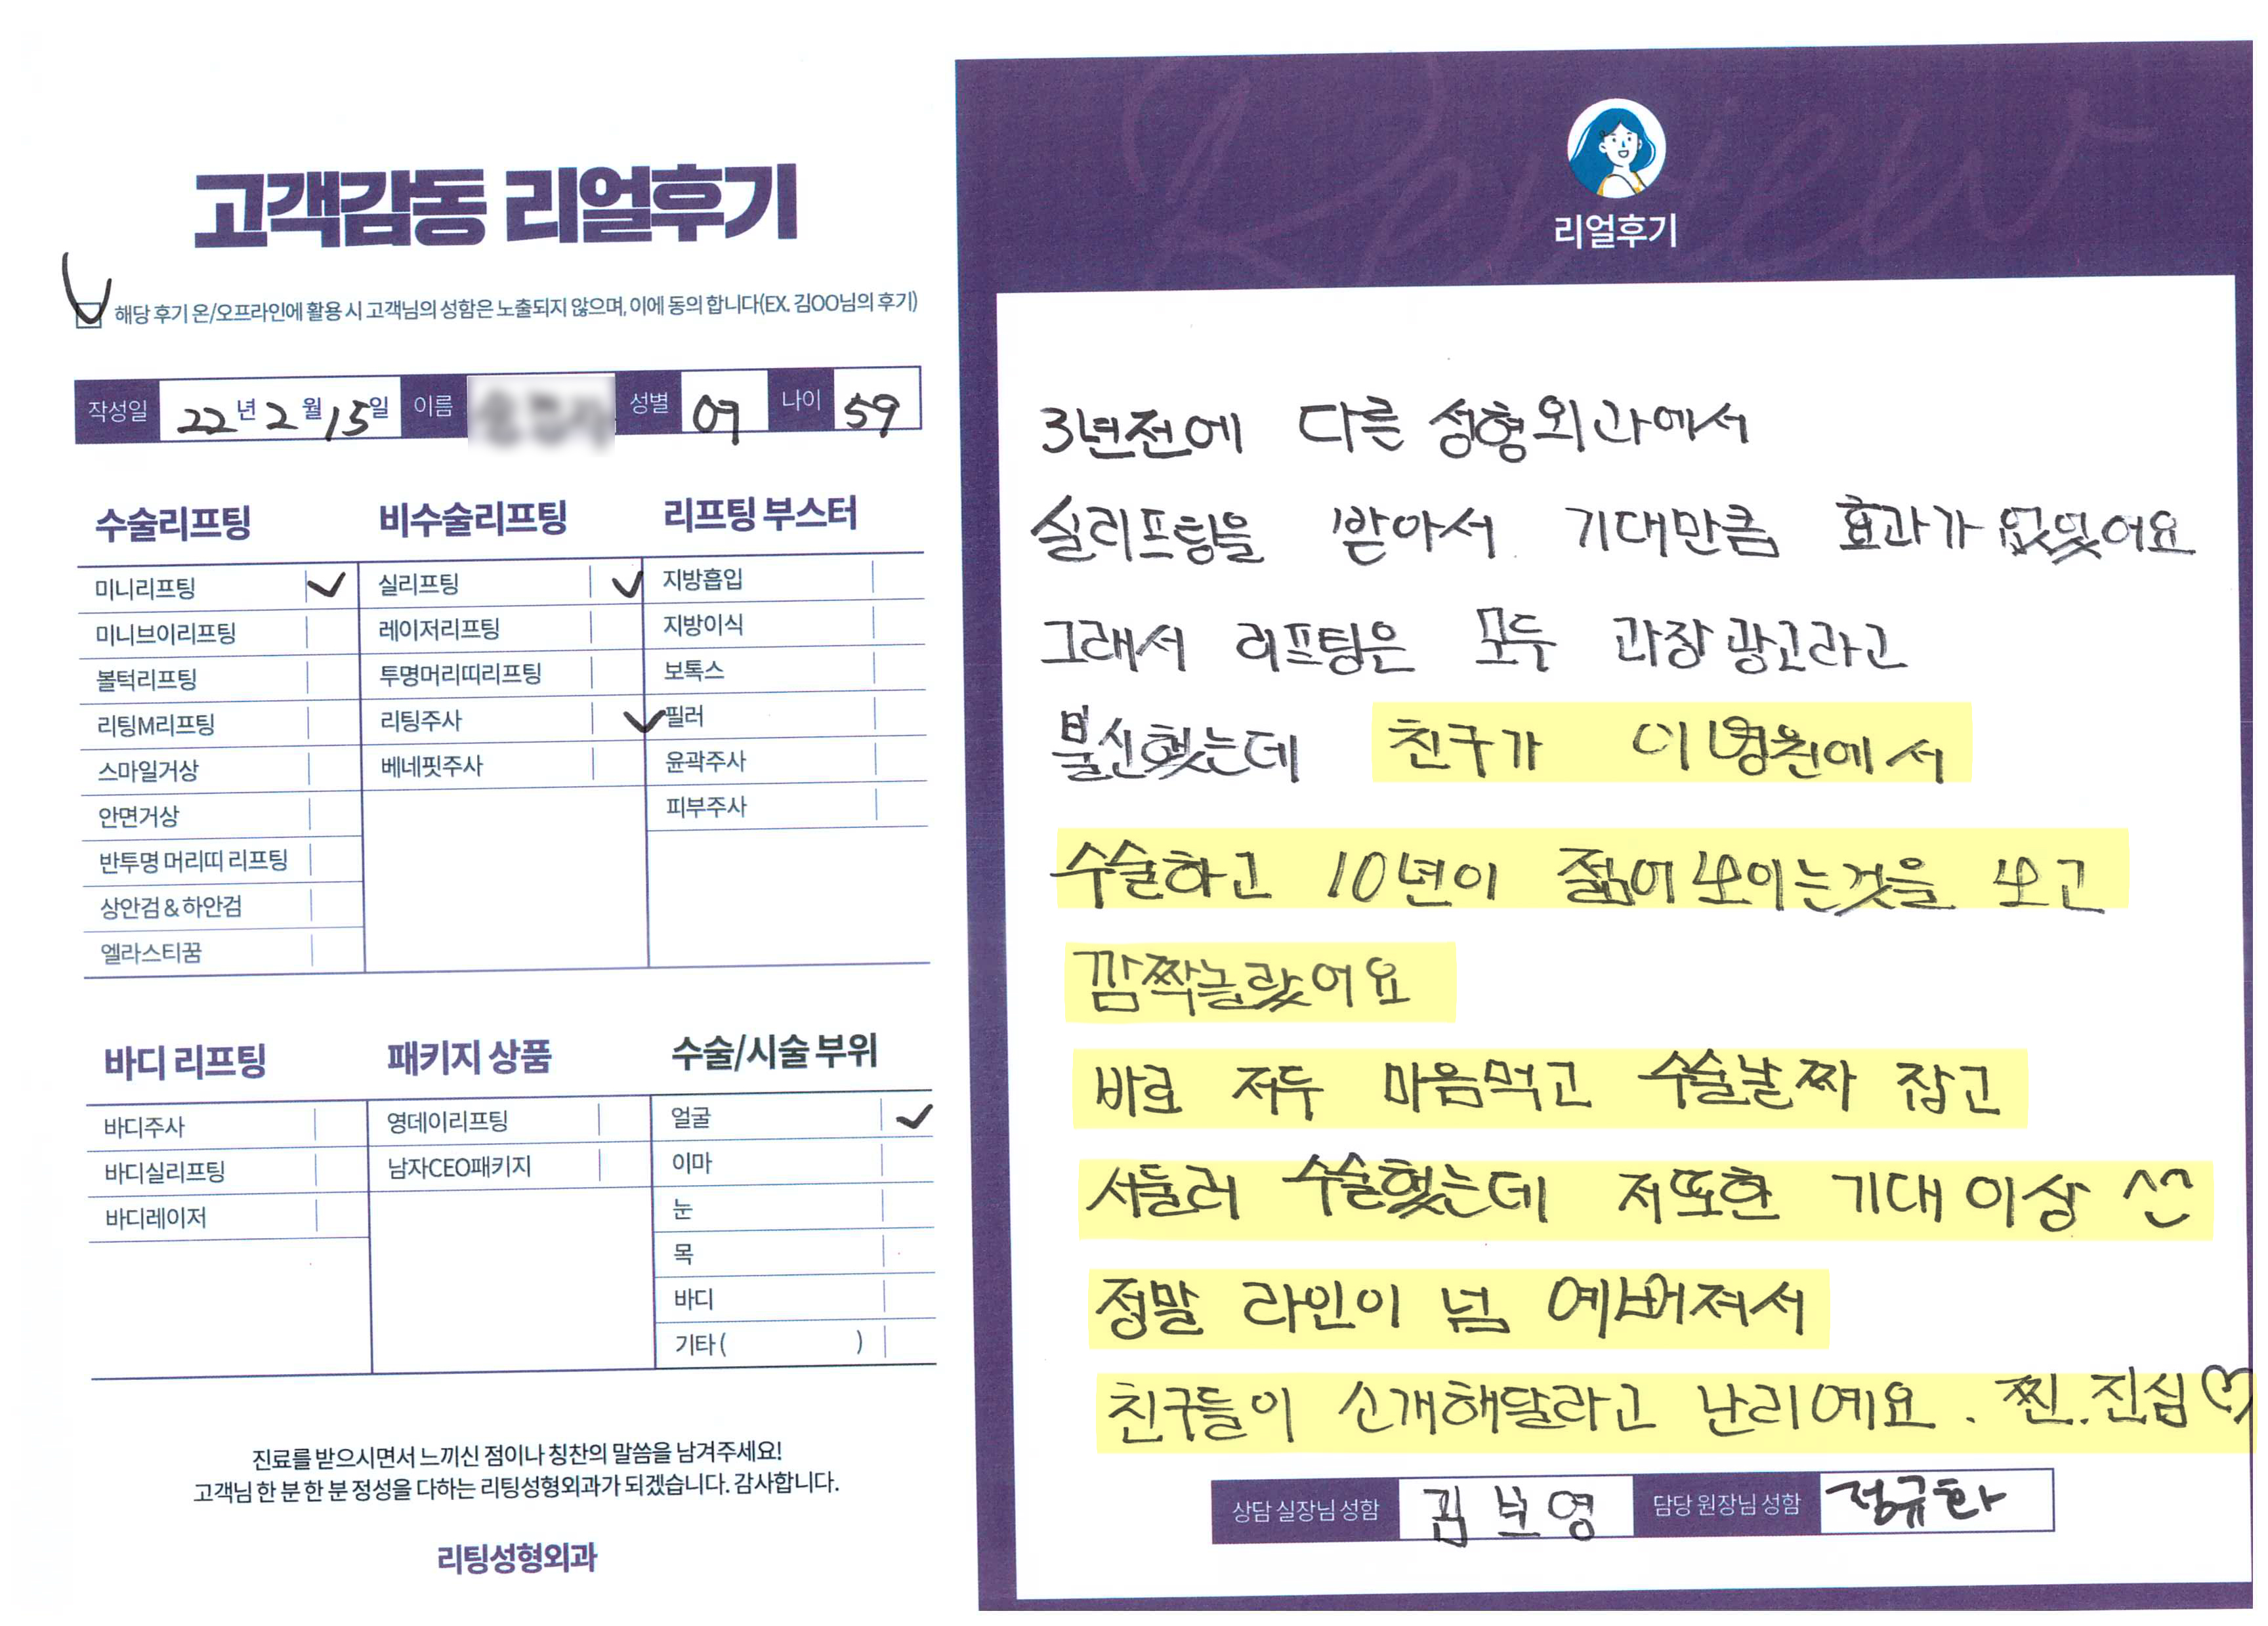 고객감동 리얼후기
해당 후기 온/오프라인에 활용 시 고객님의 성함은 노출되지 않으며, 이에 동의 합니다(EX. 김OO님의 후기)
작성일 22년 2월 15일 이름 성별 여 나이 59
수술리프팅 비수술리프팅 리프팅 부스터
미니리프팅 실리프팅 지방흡입
미니브이리프팅 레이저리프팅 지방이식
볼턱리프팅 투명머리띠리프팅 보톡스
리팅M리프팅 리팅주사 필러
스마일거상 베네핏주사 윤곽주사
안면거상 피부주사
반투명 머리띠 리프팅
상안검 & 하안검
엘라스티꿈
바디 리프팅 패키지 상품 수술/시술 부위
바디주사 영데이리프팅 얼굴
바디실리프팅 남자CEO패키지 이마
바디레이저 눈
목
바디
기타 ( )
진료를 받으시면서 느끼신 점이나 칭찬의 말씀을 남겨주세요!
고객님 한 분 한 분 정성을 다하는 리팅성형외과가 되겠습니다. 감사합니다.
리팅성형외과
Review
리얼후기
3년전에 다른 성형외과에서
실리프팅을 받아서 기대만큼 효과가 없었어요
그래서 리프팅은 모두 과장광고라고
불신했는데 친구가 이 병원에서
수술하고 10년이 젊어보이는것을 보고
깜짝놀랐어요
바로 저두 마음먹고 수술날짜 잡고
서둘러 수술했는데 저또한 기대이상 ^^
정말 라인이 넘 예뻐져서
친구들이 소개해달라고 난리예요. 찐.진심♡
상담 실장님 성함 김보영 담당 원장님 성함 정규화